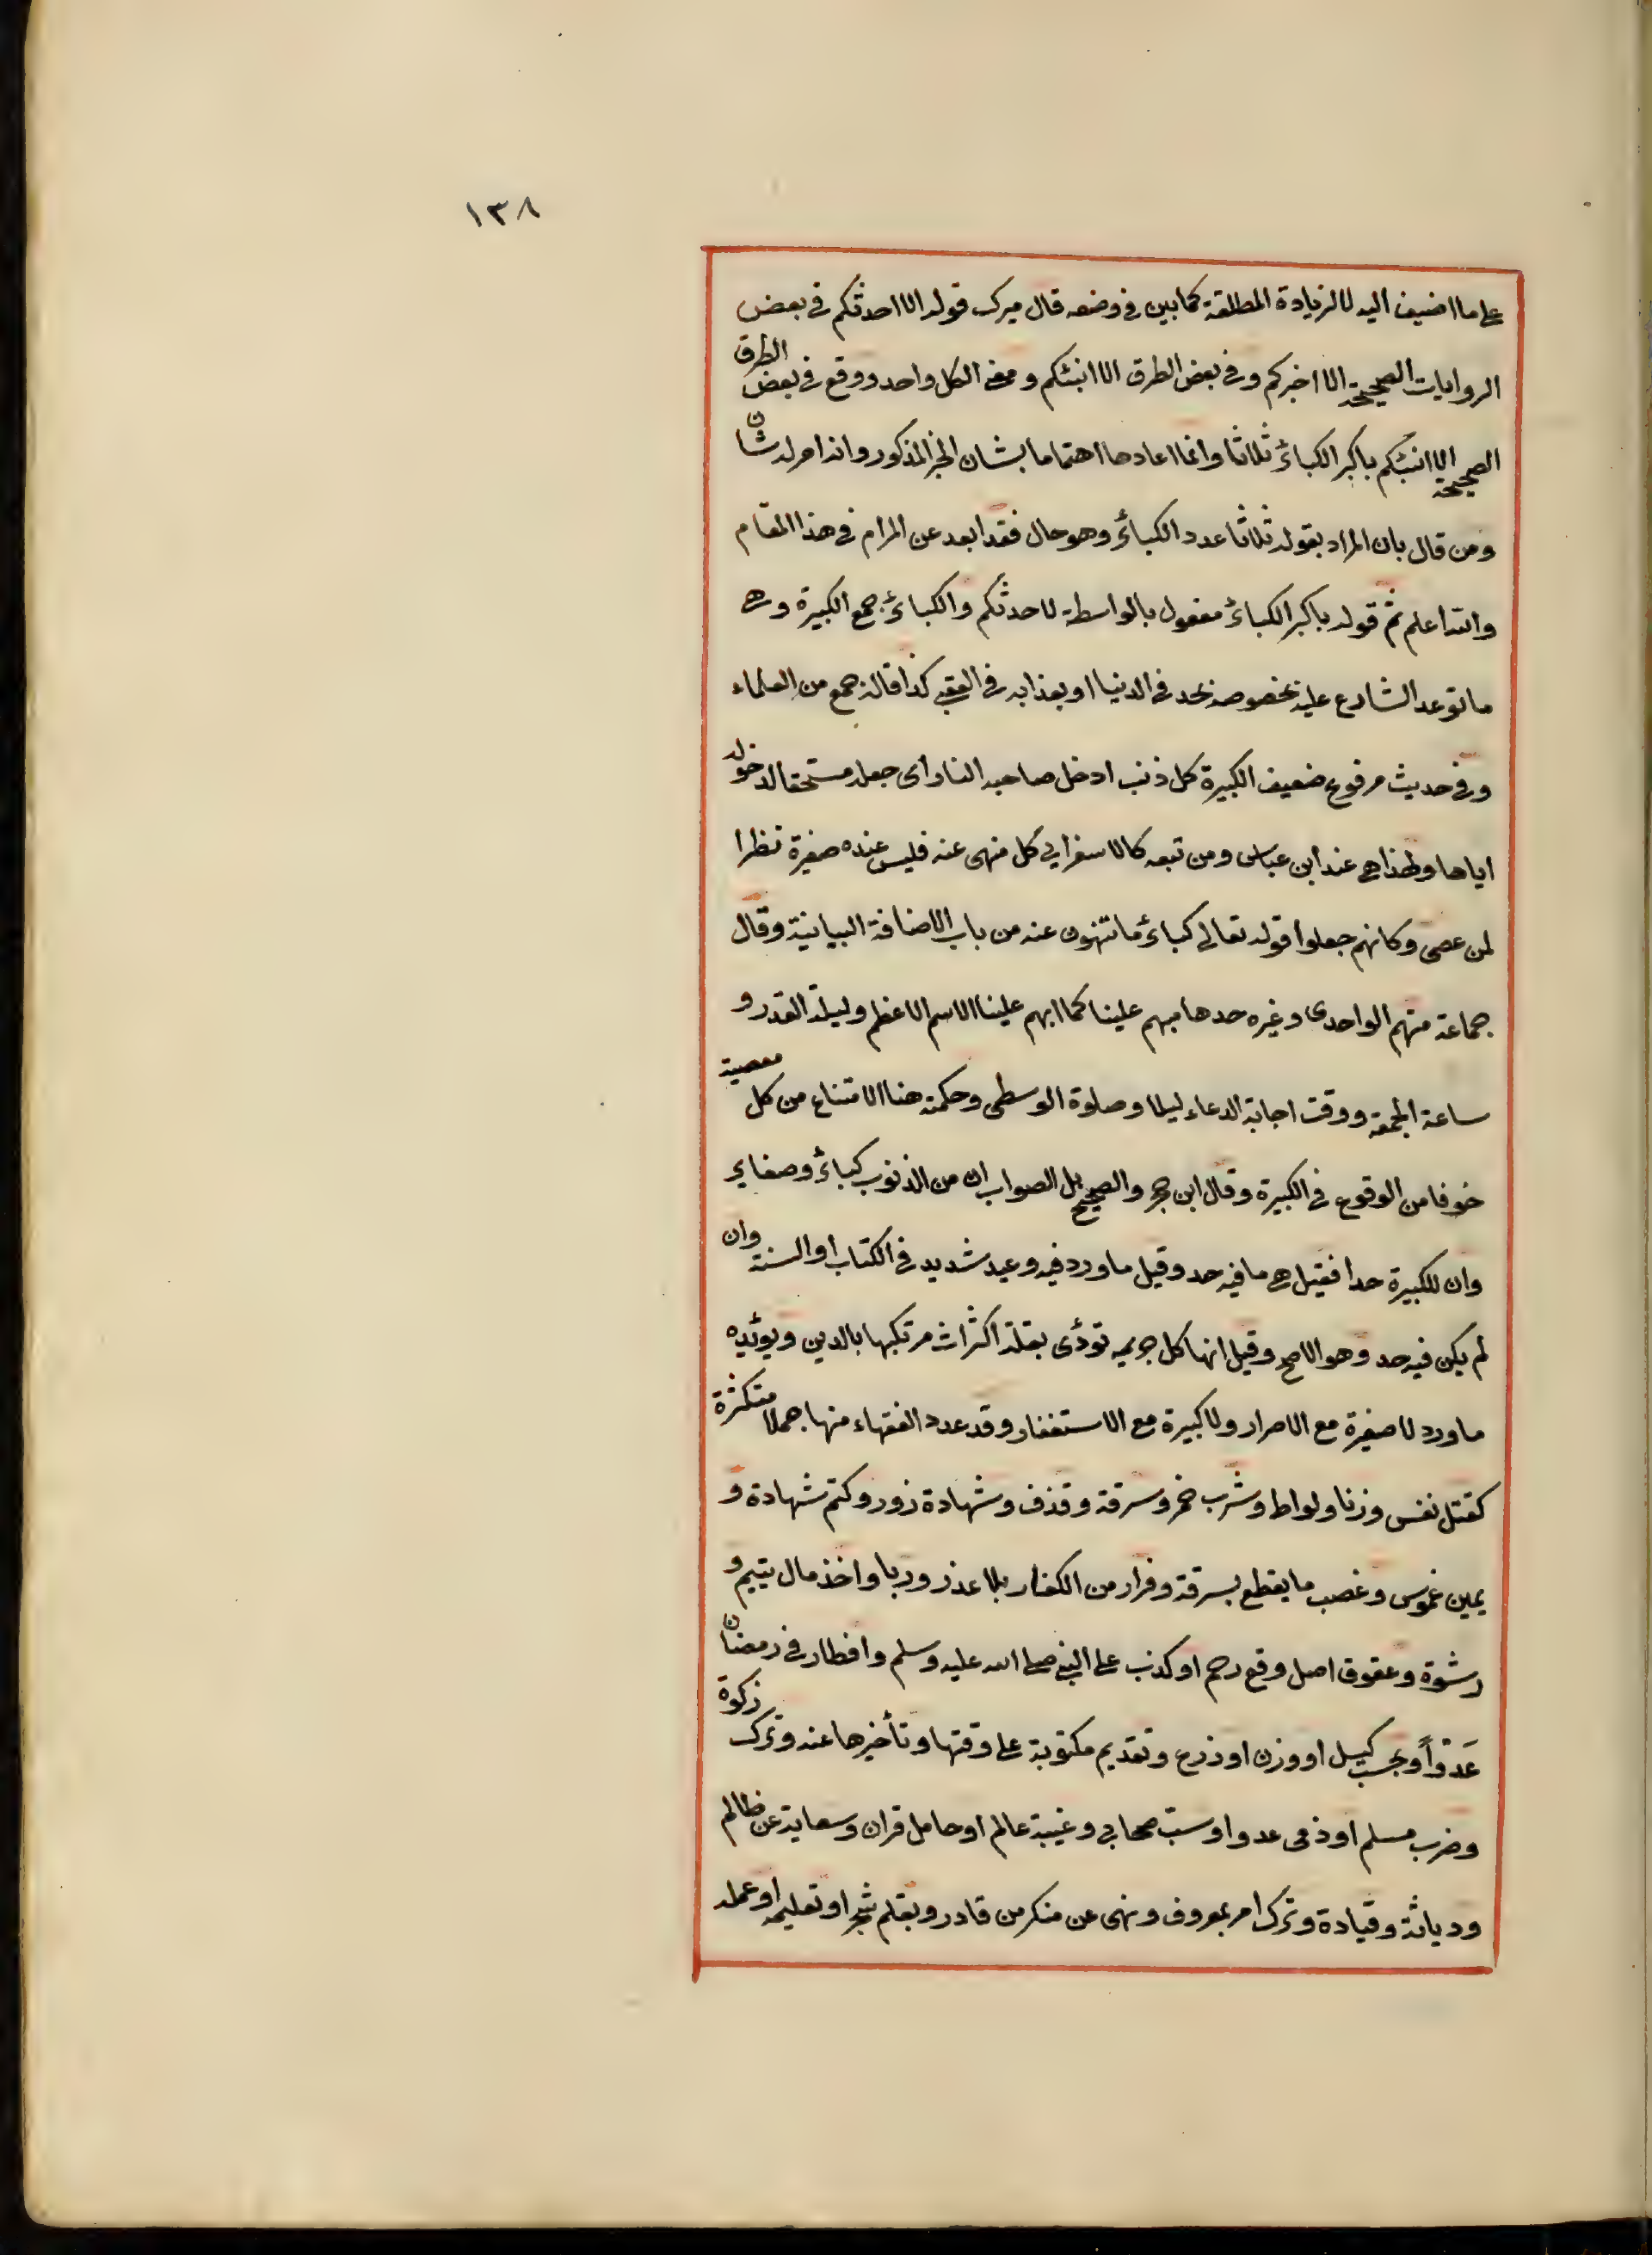 ١٣٨
على ما اضيف اليه لا لزيادة المطلقة كما بين في وضعه قال ميرك قوله الا احدثكم في بعض
الروايات الصحيحة الا اخبركم وفي بعض الطرق الا انبئكم ومعنى الكل واحد ووقع في بعض الطرق
الصحيحة الا انبئكم باكبر الكبائر ثلاثا وانما اعادها اهتماما بشان الخبر المذكور وانه امر له شان
ومن قال بان المراد بقوله ثلاثا عدد الكبائر وهو حال فقد ابعد عن المرام في هذا المقام
والله اعلم ثم قوله باكبر الكبائر مفعول بالواسطة لاحدثكم والكبائر جمع الكبيرة وهي
ما توعد الشارع عليه بخصوصه بحد في الدنيا او بعذابه في العقبى كذا قاله جمع من العلماء
وفي حديث مرفوع ضعيف الكبيرة كل ذنب ادخل صاحبه النار اى جعله مستحقا لدخوله
اياها ولهذا هي عند ابن عباس ومن تبعه كالاسفرايي كل منهى عنه فليس عنده صغيرة نظرا
لمن عصى وكانهم جعلوا قوله تعالى كبائر ما تنهون عنه من باب الاضافة البيانية وقال
جماعة منهم الواحدى وغيره حدها مبهم علينا كما ابهم علينا الاسم الاعظم وليلة القدر و
ساعة الجمعة ووقت اجابة الدعاء ليلا وصلوة الوسطى وحكمته هنا الامتناع من كل معصية
خوفا من الوقوع في الكبيرة وقال ابن حجر والصحيح بل الصواب ان من الذنوب كبائر وصغاير
وان للكبيرة حدا فقيل هي ما فيه حد وقيل ما ورد فيه وعيد شديد في الكتاب او السنة وان
لم يكن فيه حد وهو الاصح وقيل انها كل جريمه تؤدى بقلة اكثراث مرتكبها بالدين ويؤيده
ما ورد لا صغيرة مع الاصرار ولا كبيرة مع الاستغفار وقد عدد الفقهاء منها جملا متكثرة
كقتل نفس وزنا ولواط وشرب خمر وسرقة وقذف وشهادة زور وكتم شهادة و
يمين غموس وغصب ما يقطع بسرقة وفرار من الكفار بلا عذر وربا واخذ مال يتيم و
رشوة وعقوق اصل وقع رحم او كذب على النبي صلى الله عليه وسلم وافطار في رمضان
عَدْواً وبخس كيل او وزن او ذرع وتقديم مكتوبة على وقتها وتأخيرها عنه وترك زكوة
وضرب مسلم او ذمى عدوا وسبّ صحابي وغيبة عالم او حامل قران وسعاية عن ظالم
ودياثة وقيادة وترك امر بمعروف ونهى عن منكر من قادر وبقلم او تعليمه او عمله